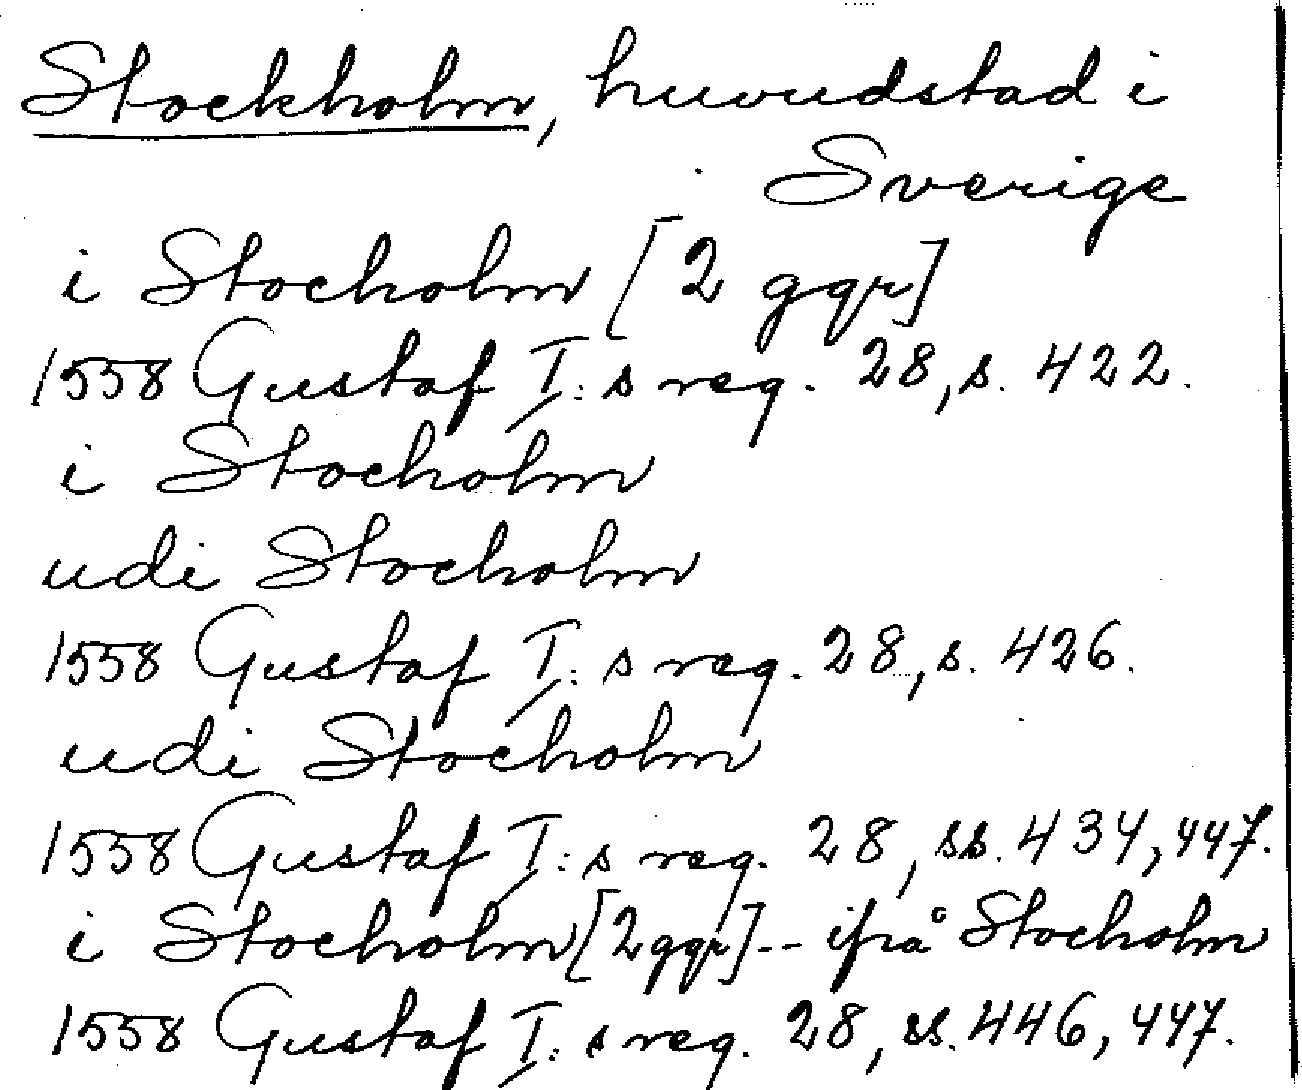 Stockholm, huvudstad i
Sverige
i Stocholm [2 ggr]
1558 Gustaf I:s reg. 28, s. 422.
i Stocholm
udi Stocholm
1558 Gustaf I:s reg. 28, s. 426.
udi Stocholm
1558 Gustaf I:s reg. 28, ss. 434, 447.
i Stocholm [2 ggr] -- ifrå Stocholm
1558 Gustaf I:s reg. 28, ss. 446, 447.